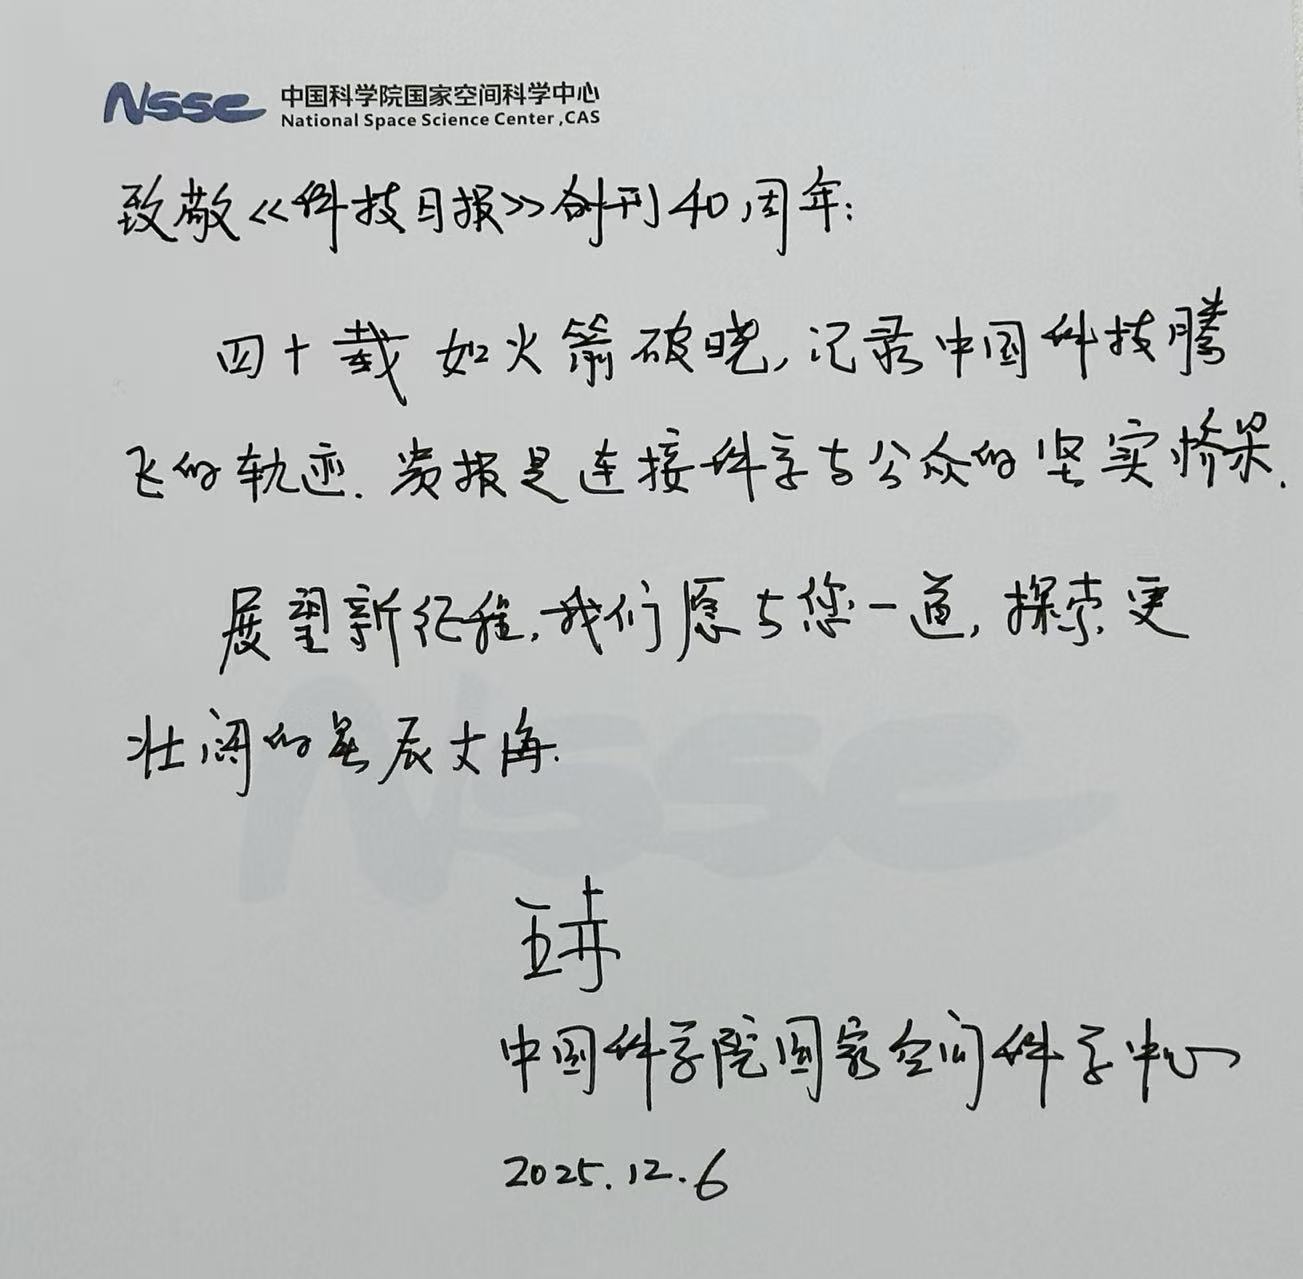 NSSC 中国科学院国家空间科学中心
National Space Science Center,CAS
致敬《科技日报》创刊40周年：
四十载如火箭破晓，记录中国科技腾
飞的轨迹.贵报是连接科学与公众的坚实桥梁.
展望新征程，我们愿与您一道，探索更
壮阔的星辰大海.
NSSC
王
中国科学院国家空间科学中心
2025.12.6